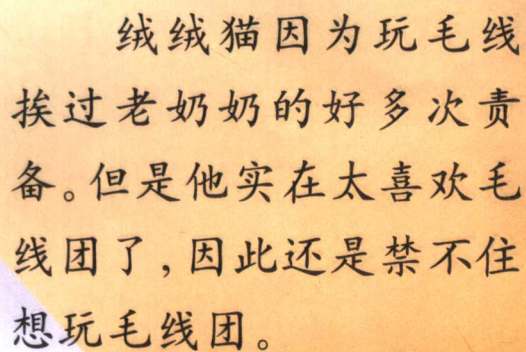 绒绒猫因为玩毛线
挨过老奶奶的好多次责
备。但是他实在太喜欢毛
线团了，因此还是禁不住
想玩毛线团。